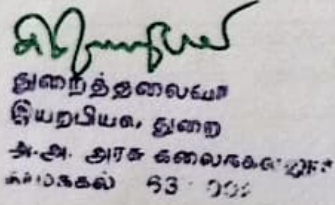 துறைத்தலைவர்
இயற்பியல் துறை
அ.அ. அரசு கலைக்கல்லூரி
நாமக்கல்